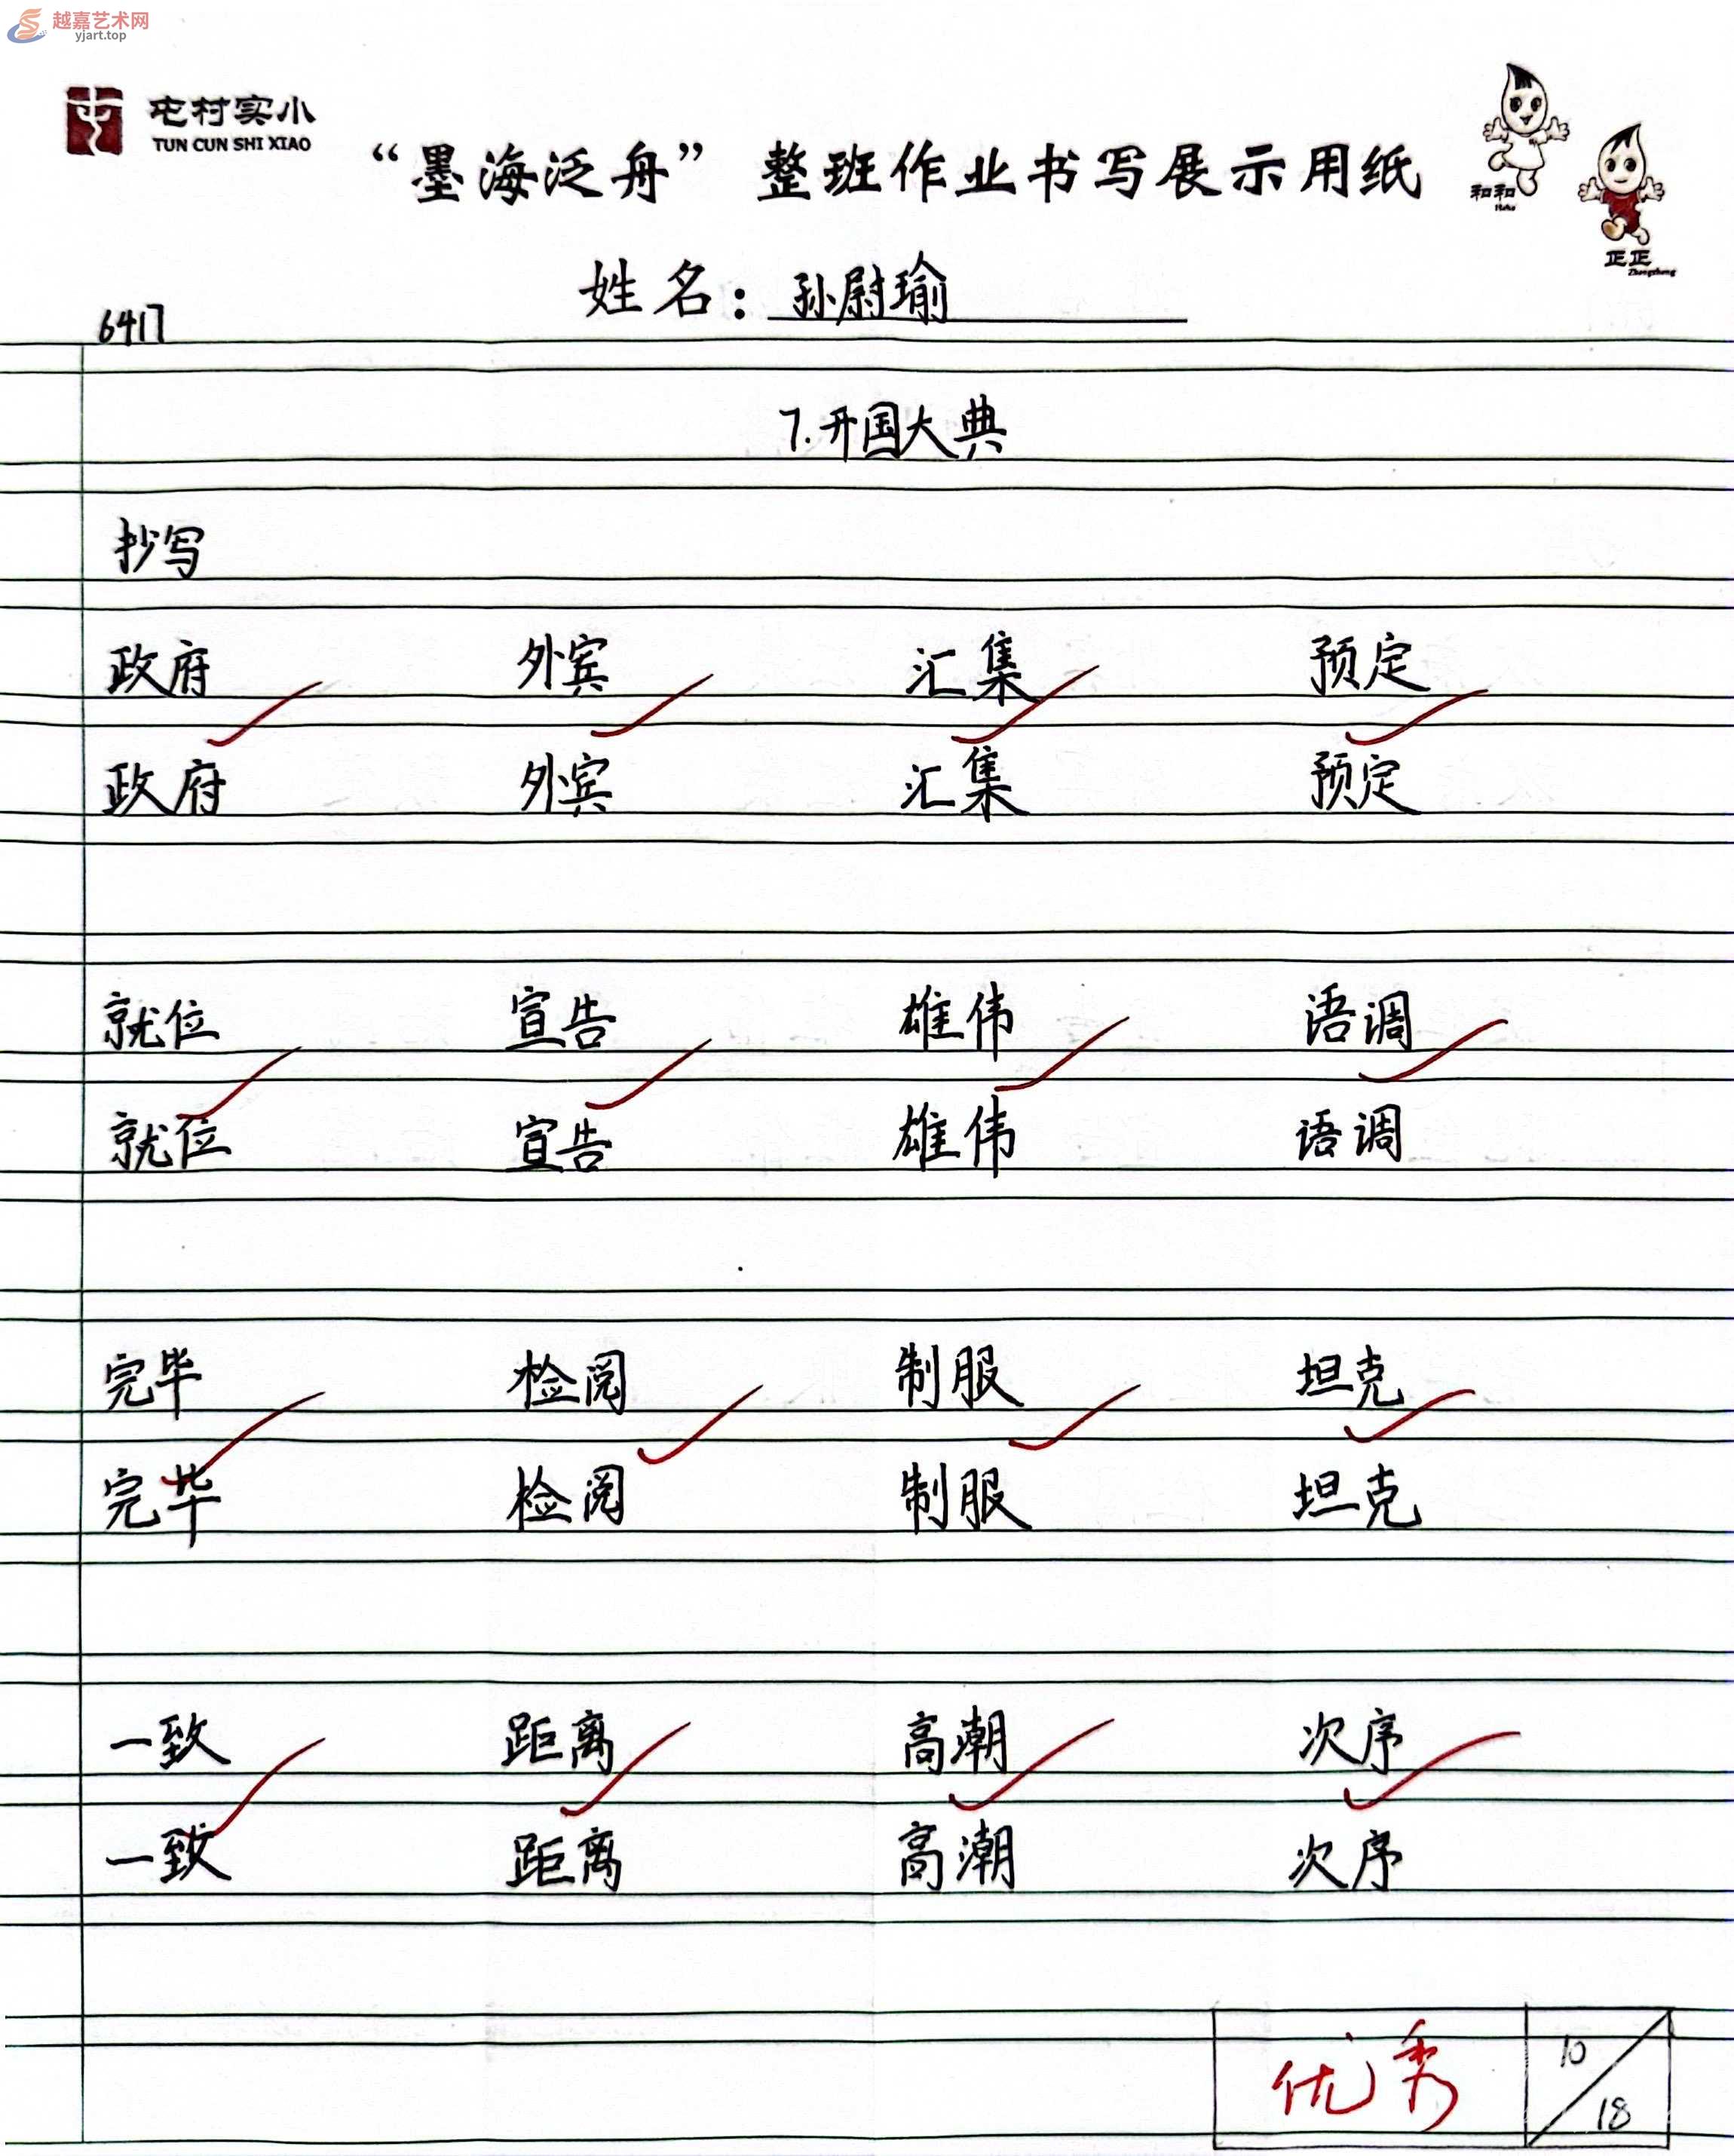 越嘉艺术网
yjart.top
屯村实小
TUN CUN SHI XIAO
“墨海泛舟” 整班作业书写展示用纸
和和
Hehe
正正
Zhengzheng
姓名：孙尉瑜
6417
7.开国大典
抄写
政府 外宾 汇集 预定
政府 外宾 汇集 预定
就位 宣告 雄伟 语调
就位 宣告 雄伟 语调
完毕 检阅 制服 坦克
完毕 检阅 制服 坦克
一致 距离 高潮 次序
一致 距离 高潮 次序
优秀 10/18